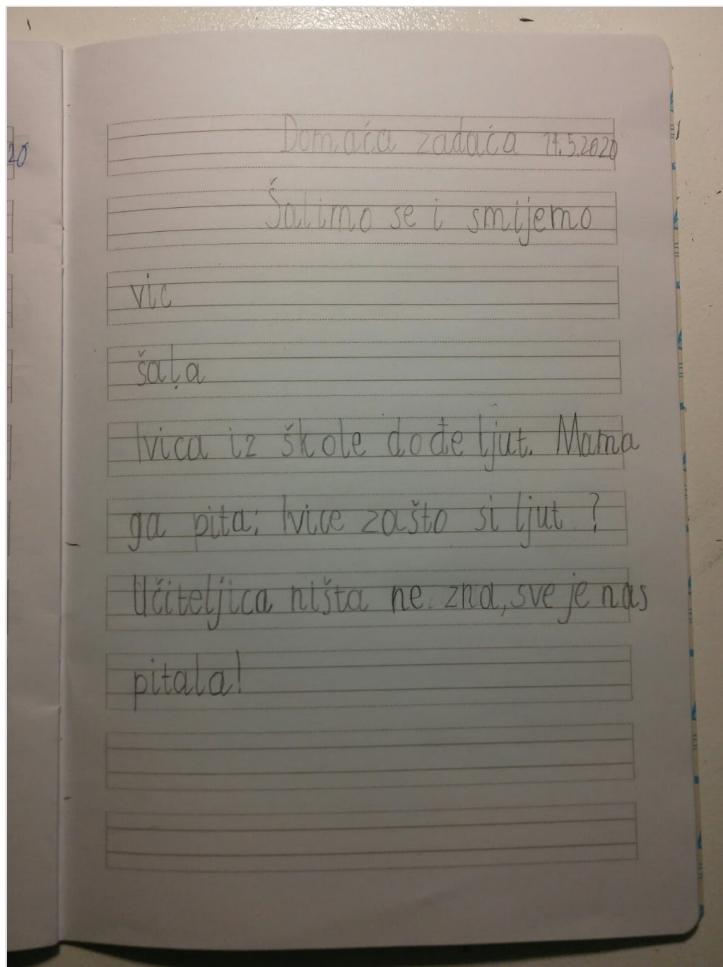 20
Domaća zadaća 14.5.2020
Šalimo se i smijemo
vic
šala
Ivica iz škole dođe ljut. Mama
ga pita: Ivice zašto si ljut ?
Učiteljica ništa ne zna, sve je nas
pitala!